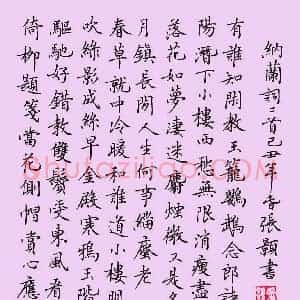 倚柳題箋當花側帽賞心應
驅馳好錯教雙鬢受東風看
吹綠影成絲早金殿寒鴉玉階
春草就中冷暖和誰道小樓明
月鎮長閑人生何事緇塵老
落花如夢淒迷麝煙微又是
陽潛下小樓西愁無限消瘦盡
有誰知閑教玉籠鸚鵡念郎詩
納蘭詞二首己丑年冬張顥書
Shufaziliao.com